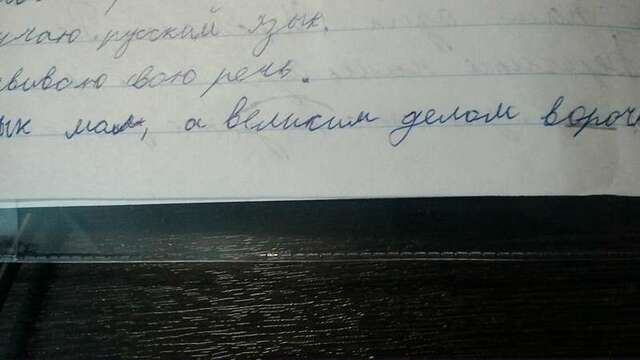 учаю русский язык.
звиваю свою речь.
ык мал, а великим делом вороч